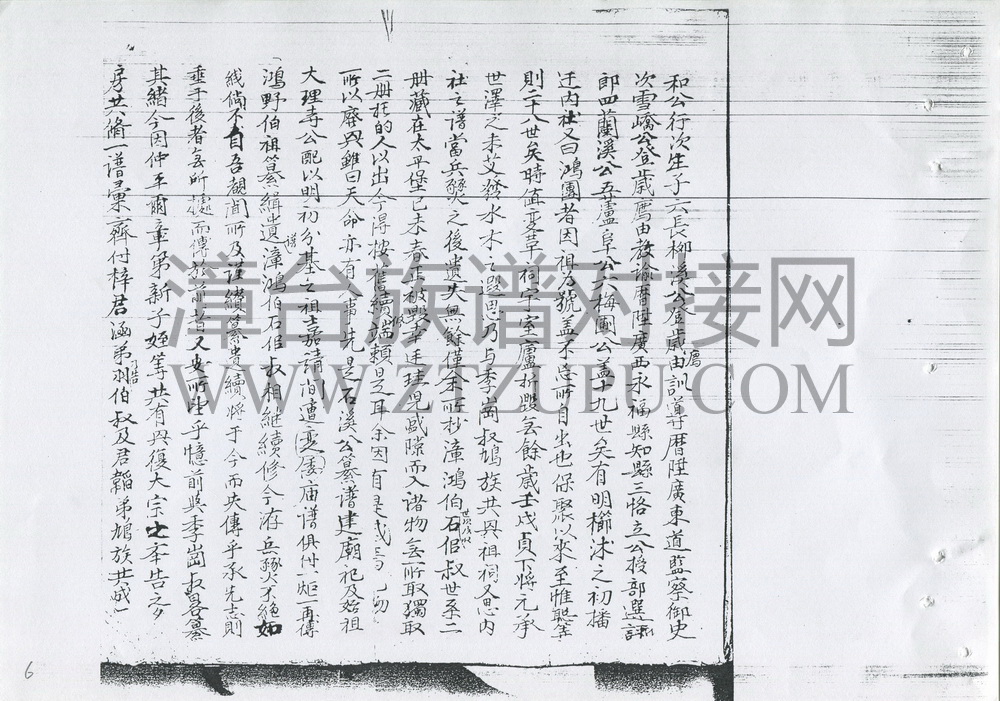 和公行次生子六長柳溪公登歲薦由訓導歷陞廣東道監察御史
次雪嶠公登歲薦由教諭歷陞廣西永福縣知縣三恪立公授部選
郎四蘭溪公五蘆阜公六梅園公蓋十九世矣有明櫛沐之初播
迁內社又曰鴻團者因祖為號蓋不忘所自出也保聚以來至惟聰等
則二十八世矣時值变革祠宇室廬折毀無餘歲壬戌貞下將元承
世澤之未艾發水木之遐思乃与季岗叔鳩族共興祖祠又思內
社之谱當兵燹之後遺失無餘僅余所抄漳鴻伯石侶叔世系二
册藏在太平堡己未春正被 兒戯隙而入诸物無所取獨取
二册托的人以出今得按舊續 端賴是耳余因
所以廢興雖曰天命亦有人事先是石溪公纂谱建廟祀及始祖
大理寺公配以明初分基之祖嘉請间遭变倭庙谱俱付一炬一再傳
鴻野伯祖纂緝遺谱漳鴻伯石侶叔相継續修今洊兵燹不絕如
线倘不自吾覩聞所及謹續纂遺續將于今而失傳乎承先志則
垂于後者無所據而傳於前者又安所生乎憶前與季岗叔畧纂
其緒今因仲平爾章第新子姪等共有興復大宗之本告之
房共脩一譜彙齊付梓君涵弟羽伯叔及君韜弟鳩族共成
6
漳台族谱对接网
WWW.ZTZUPU.COM